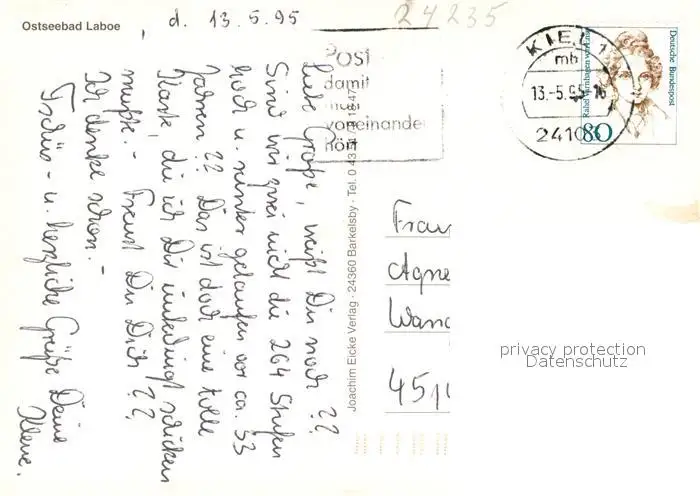 Ostseebad Laboe
, d. 13.5.95
24235
Liebe Große, weißt Du noch ??
Sind wir zwei nicht die 264 Stufen
hoch u. runter gelaufen vor ca. 53
Jahren ?? Das ist doch eine tolle
Karte, die ich Dir unbedingt schicken
mußte. - Freust Du Dich ??
Ich denke schon. -
Tschüs - u. herzliche Grüße Deine
Kleve.
Joachim Eicke Verlag · 24360 Barkelsby · Tel. 0 43
POST
damit
man
voneinander
hört
KIEL 1
mb
13.-5.95-16
2410
Deutsche Bundespost
Rahel Varnhagen von Ense
80
Frau
Agne
Wan
451
privacy protection
Datenschutz